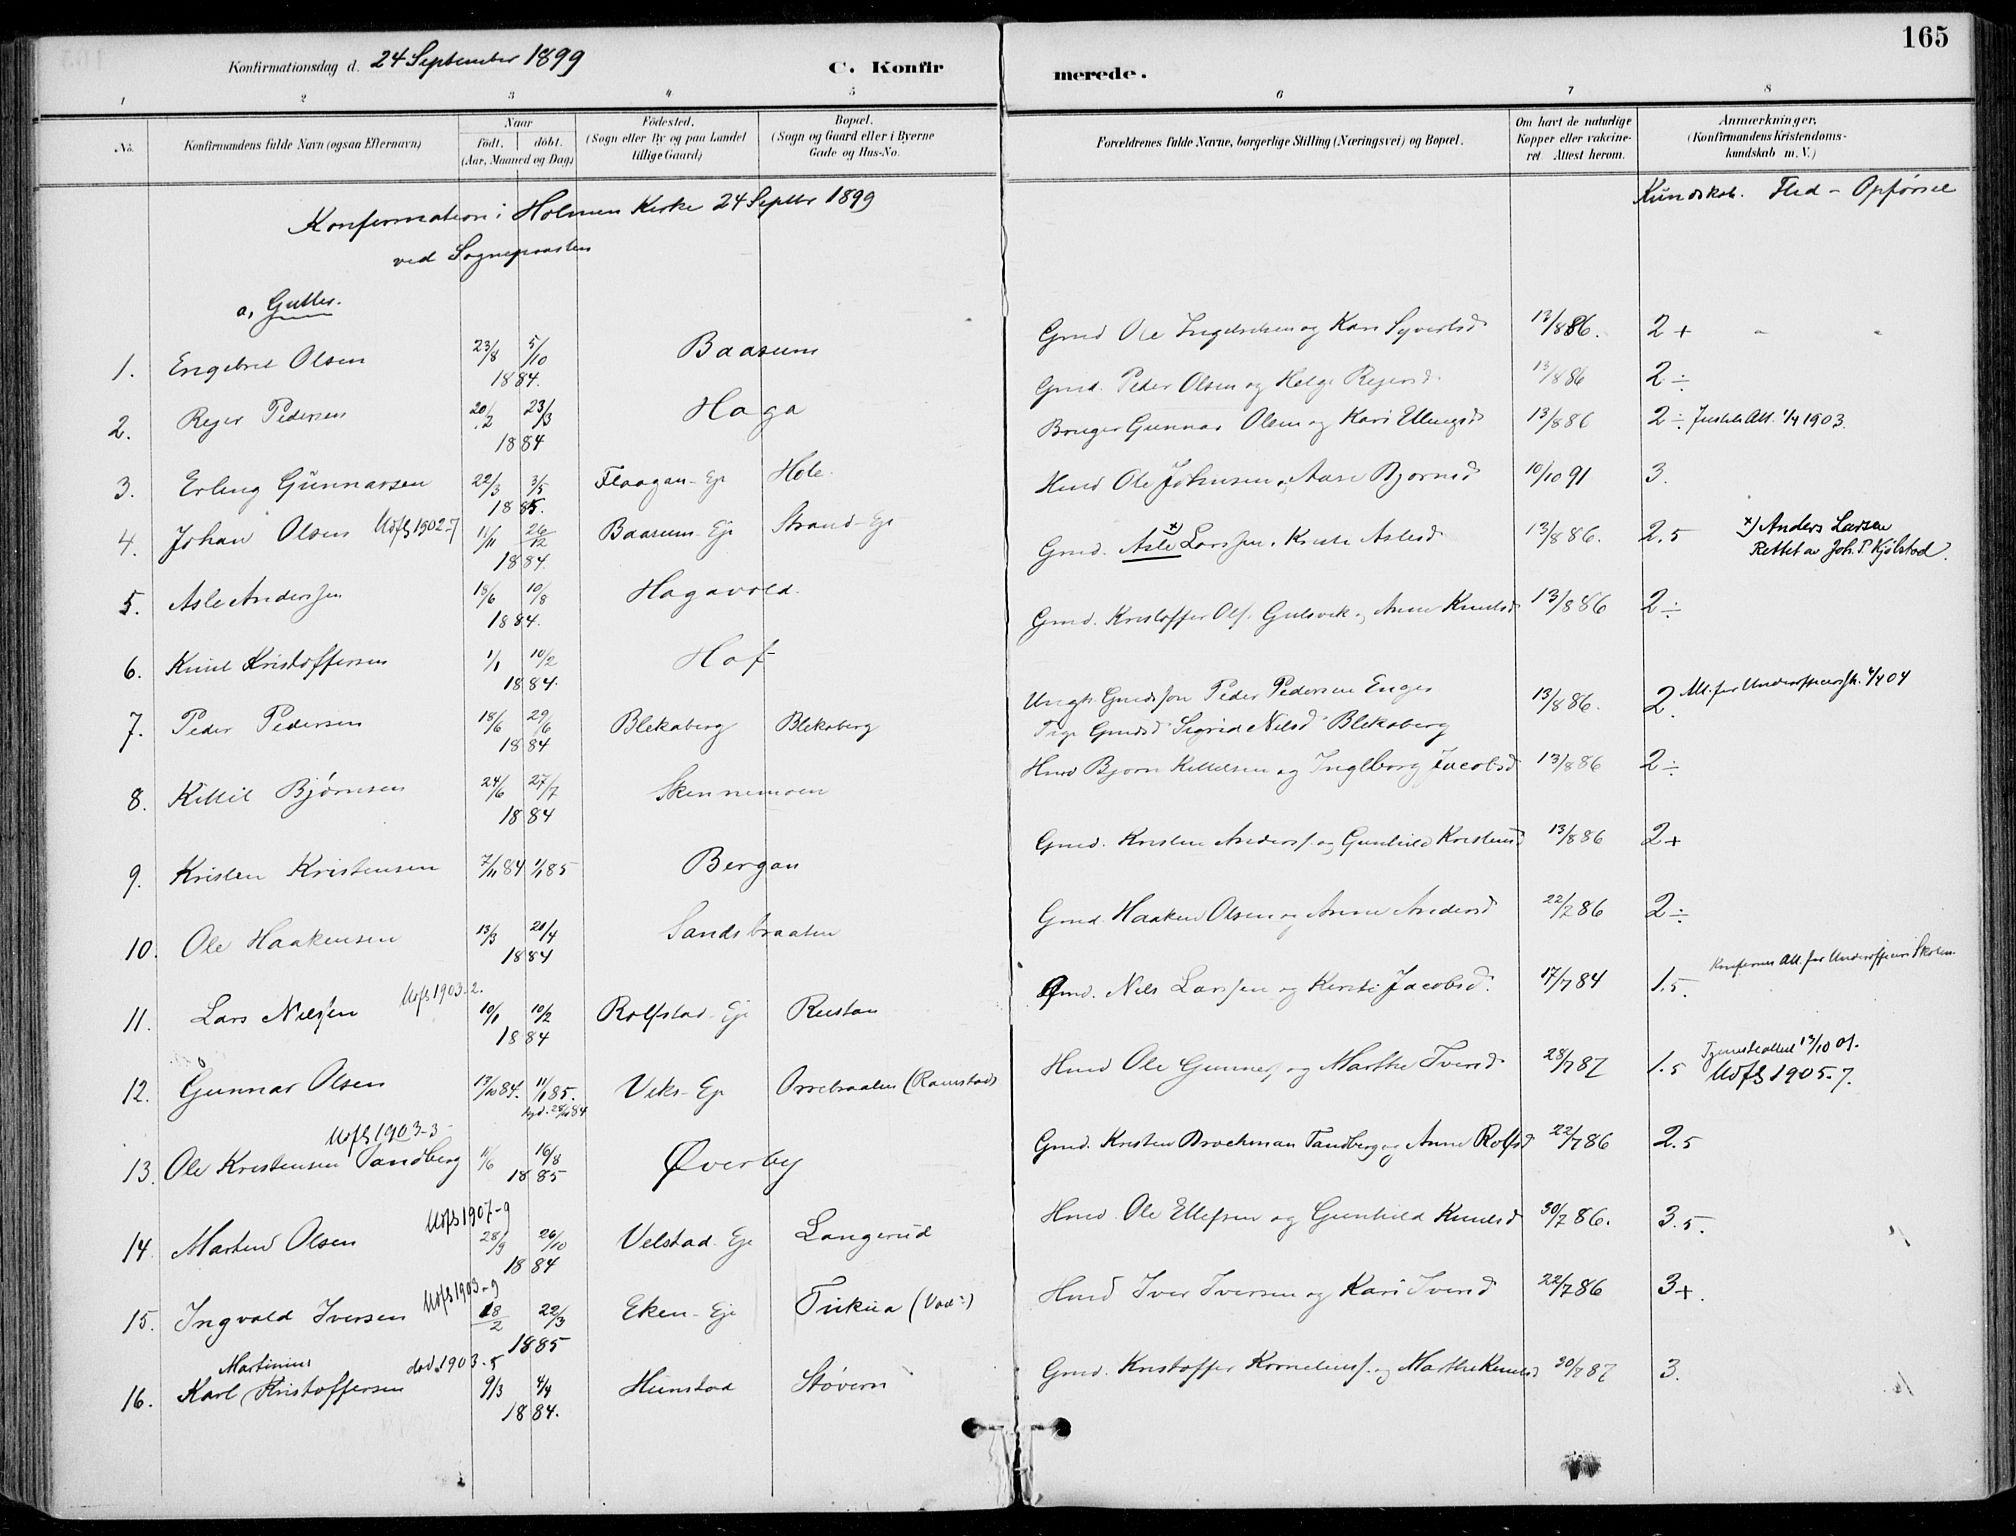 165
Konfirmationsdag d. 24 September 1899
C. Konfirmerede.
1 2 3 4 5 6 7 8
No. Konfirmandens fulde Navn (ogsaa Efternavn) Naar født. døbt. (Aar, Maaned og Dag) Födested. (Sogn eller By og paa Landet tillige Gaard) Bopæl. (Sogn og Gaard eller i Byerne Gade og Hus-No. Forældrenes fulde Navne, borgerlige Stilling (Næringsvei) og Bopæl. Om havt de naturlige Kopper eller vakcineret Attest herom. Anmærkninger, (Konfirmandens Kristendomskundskab m. V.)
Kundskab. Flid - Opførsel
Konfirmation i Holmen Kirke 24 Septbr 1899
ved Sognepræsten
a, Gutter.
1. Engebret Olsen 23/8 5/10 1884. Baasum Gmd Ole Ingebretsen og Kari Syvertsd 13/8 86. 2+
2. Rejer Pedersen 20/2 23/3 1884 Haga Gmd. Peder Olsen og Helge Rejersd. 13/8 86 2÷
3. Erling Gunnarsen 22/3 3/5 1885. Flaagan-Ej Hole Bruger Gunnar Olsen og Kari Ellingsd 13/8 86 2÷ 1903.
4. Johan Olsen Udfl 1902-7 11/11 26/12 1884. Baasum-Eje Strand-Ej Hmd Ole Johnsen og Aase Bjørnsd 10/10 91 3.
5. Asle Anderssen 18/6 10/8 1884. Hagavold. Gmd. Asle x) Larssen, Kirsti Aslesd 13/8 86. 2.5 x) Anders Larsen
Rettet av Joh. P Kjølstad.
6. Knut Kristoffersen 1/1 10/2 1884. Hof Gmd. Kristoffer Ols. Gulsvik og Anne Knutsd 13/8 86 2÷
7. Peder Pedersen 18/6 29/6 1884 Blekaberg Blekaberg Ungk. Gmdssøn Peder Pedersen Enger
Pige Gmdsd Sigrid Nilsd Blekaberg 13/8 86. 2. Att. for Underofficerssk. 04
8. Kittil Bjørnsen 24/6 27/7 1884 Skinnemoen Hmd Bjørn Kittelsen og Ingeborg Jacobsd 13/8 86 2÷
9. Kristen Kristensen 7/11 84 1/1 85 Bergan Gmd. Kristen Anders. og Gunhild Kristensd 13/8 86 2+
10. Ole Haakensen 13/3 20/4 1884 Sandsbraaten Gmd. Haaken Olsen og Anne Andersd 22/7 86 2÷
11. Lars Nilssen Udfl 1903-2. 10/1 10/2 1884 Rolfstad-Eje Rustan Gmd. Nils Larssen og Kirsti Jacobsd. 17/7 84 1.5. Att. for Underofficers Skolen.
12. Gunnar Olsen 13/10 84. 1/1 85. Viks-Ej Orrebraaten (Ramstad) Hmd Ole Gunners. og Marthe Iversd 28/7 87 1.5 13/10 01.
Udfl 1905-7.
13. Ole Kristensen Tandberg Udfl 1903-3 11/6 16/8 1885 Øverby Gmd. Kristen Brochman Tandberg og Anne Rolfsd 22/7 86 2.5
14. Martin Olsen Udfl 1907-9 28/9 26/10 1884 Velstad-Eje Langerud Hmd. Ole Ellefsen og Gunhild Knutsd 30/7 86. 3.5.
15. Ingvald Iversen Udfl 1903-9 18/2 22/3 1885 Eken-Eje (Vad-) Hmd Iver Iversen og Kari Iversd 22/7 86 3+.
16. Karl Martinius Kristoffersen død 1903-5 9/3 4/4 1884. Hunstad Støvern Gmd. Kristoffer Korneliuss. og Marthe Knutsd 30/7 87 3.